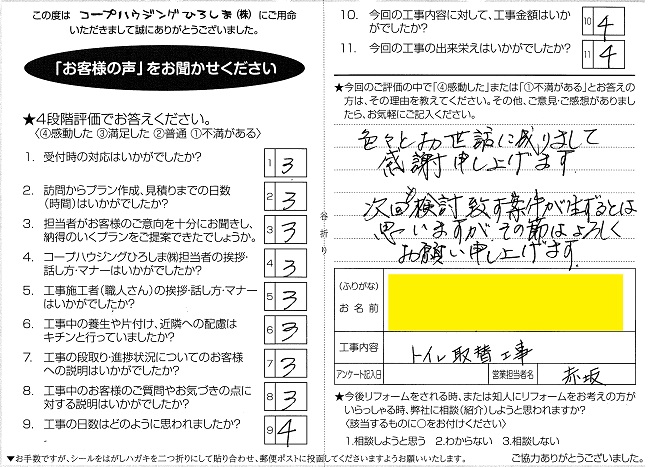 この度は コープハウジングひろしま(株) にご用命
いただきまして誠にありがとうございました。
「お客様の声」をお聞かせください
★4段階評価でお答えください。
〈④感動した ③満足した ②普通 ①不満がある〉
1. 受付時の対応はいかがでしたか?
1 3
2. 訪問からプラン作成、見積りまでの日数
(時間)はいかがでしたか?
2 3
3. 担当者がお客様のご意向を十分にお聞きし、
納得のいくプランをご提案できたでしょうか。
3 3
4. コープハウジングひろしま㈱担当者の挨拶・
話し方・マナーはいかがでしたか?
4 3
5. 工事施工者(職人さん)の挨拶・話し方・マナー
はいかがでしたか?
5 3
6. 工事中の養生や片付け、近隣への配慮は
キチンと行っていましたか?
6 3
7. 工事の段取り・進捗状況についてのお客様
への説明はいかがでしたか?
7 3
8. 工事中のお客様のご質問やお気づきの点に
対する説明はいかがでしたか?
8 3
9. 工事の日数はどのように思われましたか?
9 4
▼お手数ですが、シールをはがしハガキを二つ折りにして貼り合わせ、郵便ポストに投函してくださいますようお願いいたします。
谷折り
10. 今回の工事内容に対して、工事金額はいか
がでしたか?
10 4
11. 今回の工事の出来栄えはいかがでしたか?
11 4
★今回のご評価の中で「④感動した」または「①不満がある」とお答えの
方は、その理由を教えてください。その他、ご意見・ご感想がありました
ら、お気軽にご記入ください。
色々とお世話に成りまして
感謝申し上げます
次回も検討致す案件が生ずるとは
思いますが、その節はよろしく
お願い申し上げます。
(ふりがな)
お名前
工事内容
トイレ取替工事
アンケート記入日
営業担当者名
赤坂
★今後リフォームをされる時、または知人にリフォームをお考えの方が
いらっしゃる時、弊社に相談(紹介)しようと思われますか?
〈該当するものに○をお付けください〉
1.相談しようと思う 2.わからない 3.相談しない
ご協力ありがとうございました。